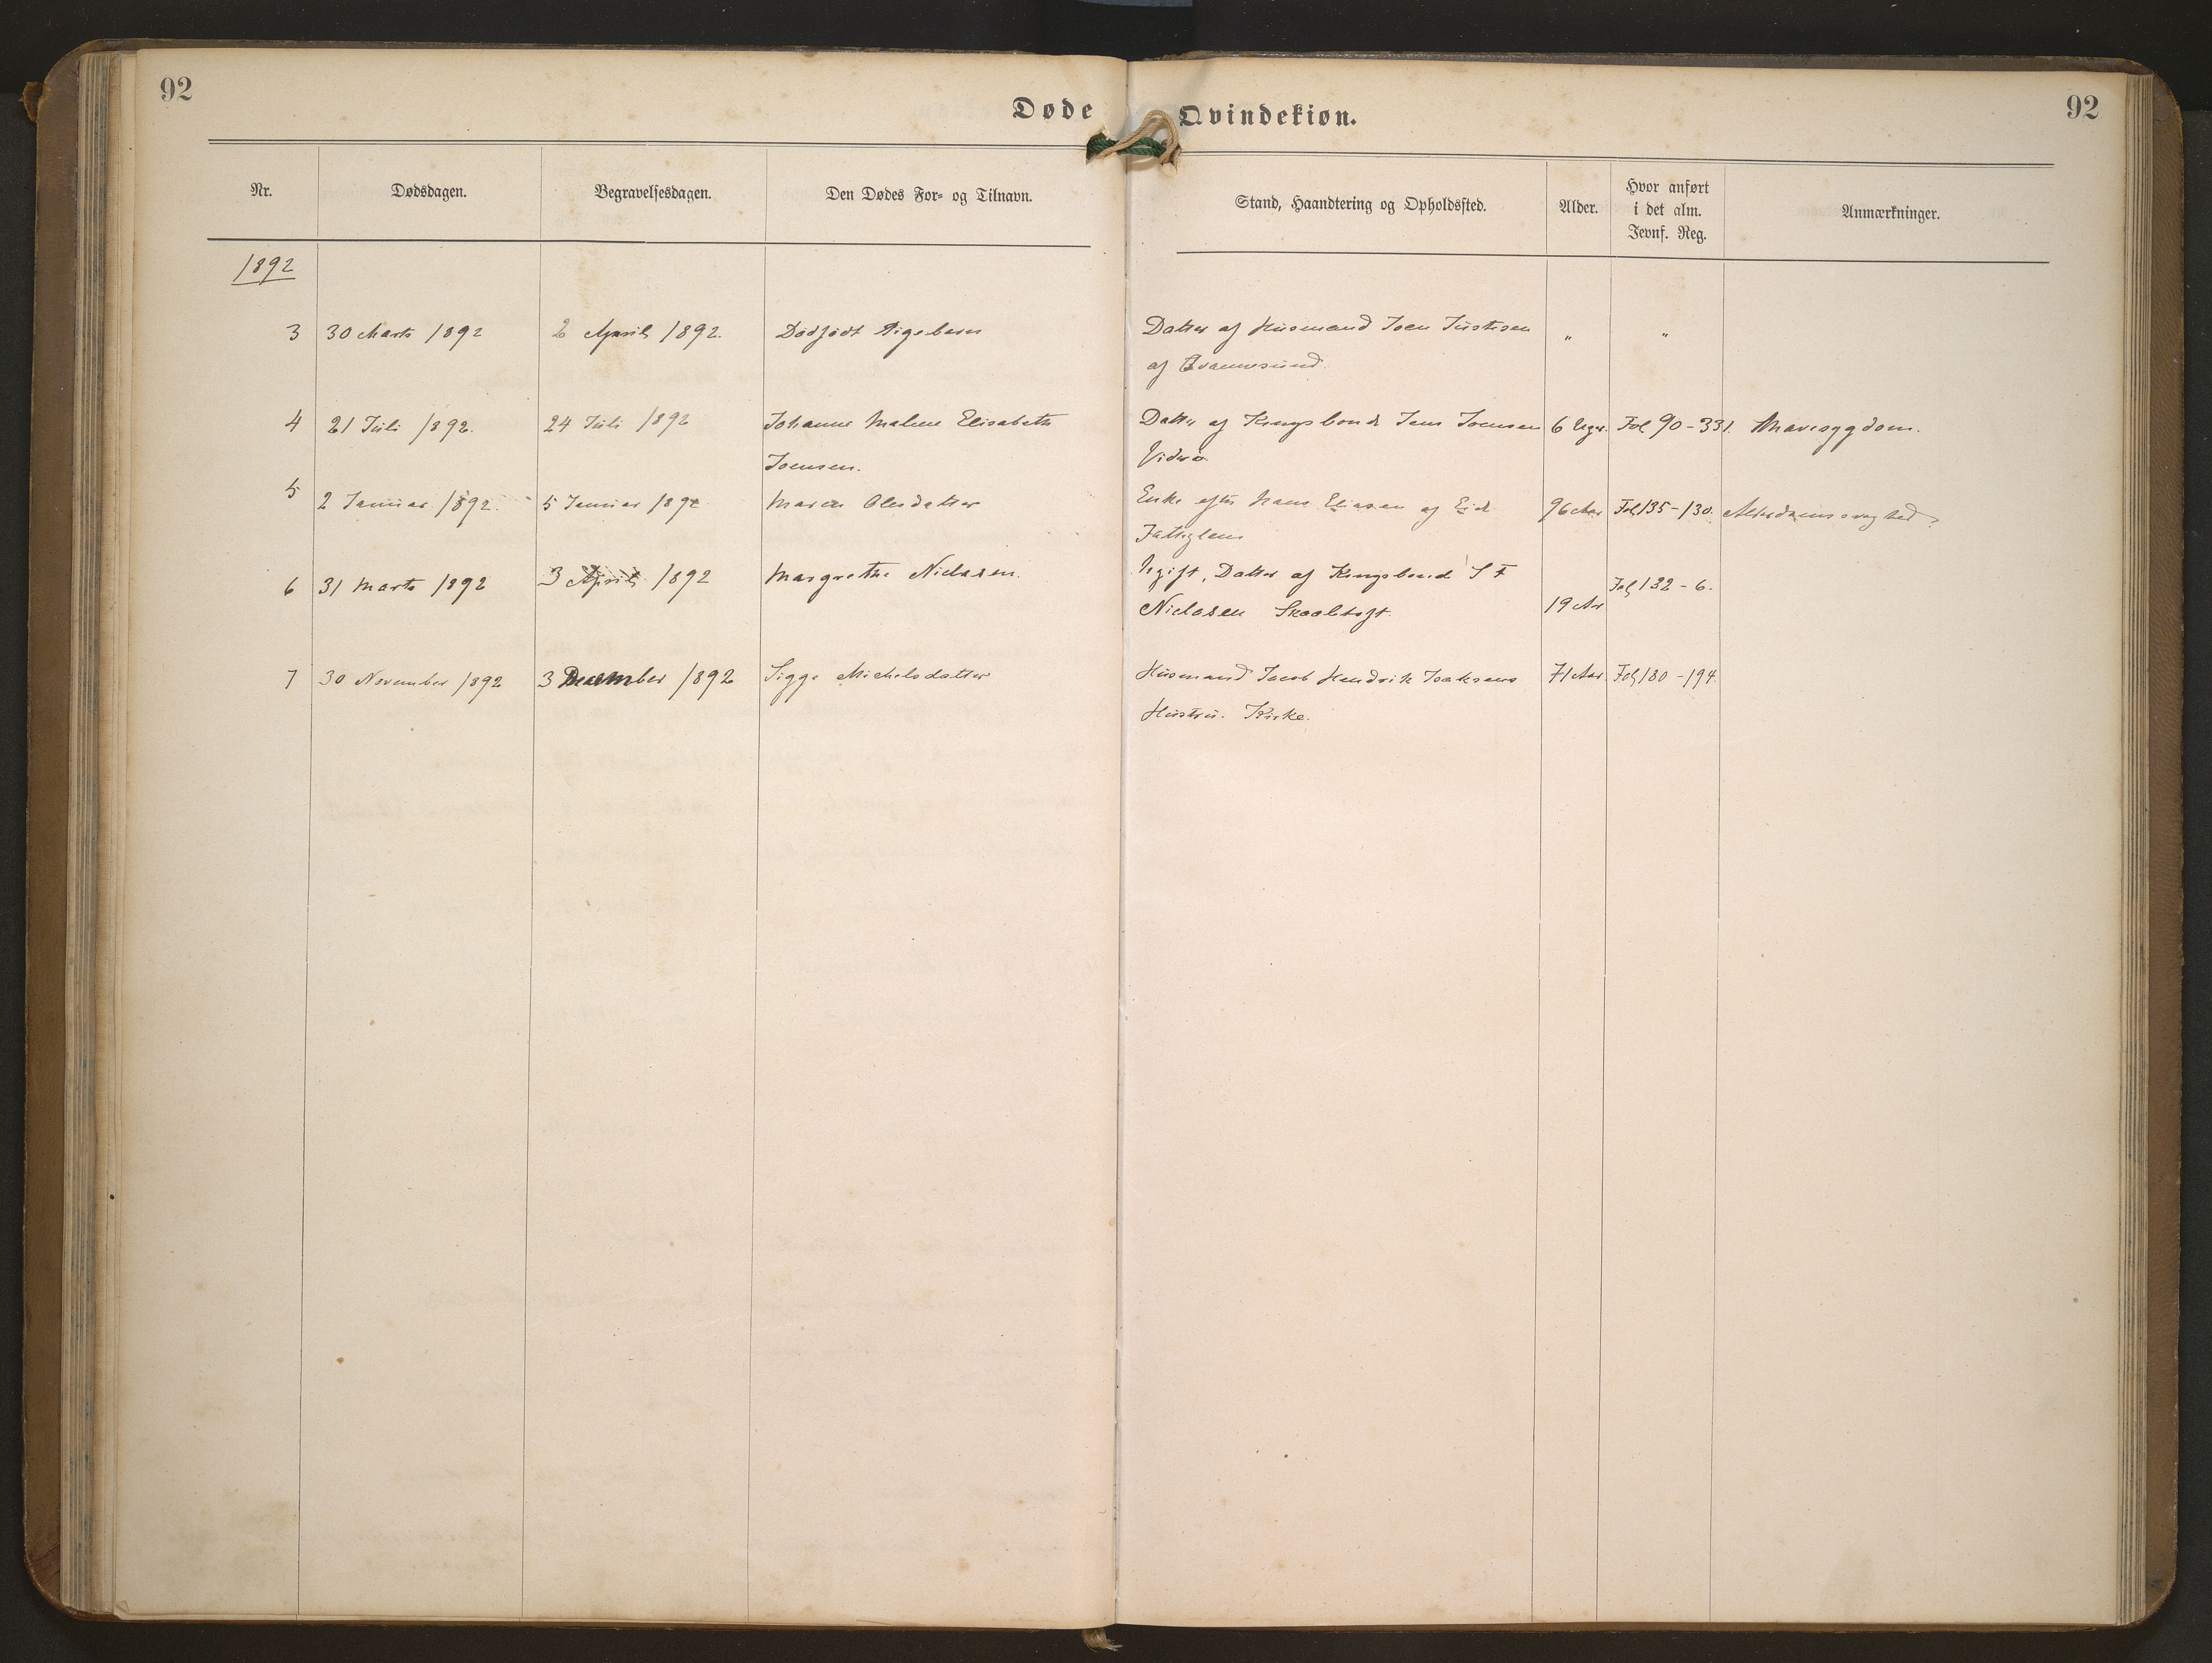 92
92
Døde Qvindekiøn.
Nr. Dødsdagen. Begravelsesdagen. Den Dødes For- og Tilnavn. Stand, Haandtering og Opholdssted. Alder. Hvor anført i det alm. Jevnf. Reg. Anmærkninger.
1892
3 30 Marts 1892 2 April 1892. Dødfødt Pigebarn Datter af Husmand Joen Justesen " "
af Qvannesund.
4 21 Juli 1892. 24 Juli 1892 Johanne Malene Elisabeth Datter af Kongsbonde Jens Joensen 6 Uger. Fol 90-331. Mavesygdom.
Joensen. Viderø
5 2 Januar 1892. 5 Januar 1892 Maren Olesdatter Enke efter Hans Eliasen af Eide 96 Aar Fol 135-130. Alderdomssvaghed
Fattiglem
6 31 Marts 1892 3 April 1892 Margrethe Niclasen. Ugift, Datter af Kongsbonde J F Fol 132-6.
Niclasen Skaaletoft 19 Aar
7 30 November 1892 3 December 1892 Sigge Michelsdatter Husmand Jacob Hendrik Isaksens 71 Aar. Fol 180-194
Hustru. Kirke.